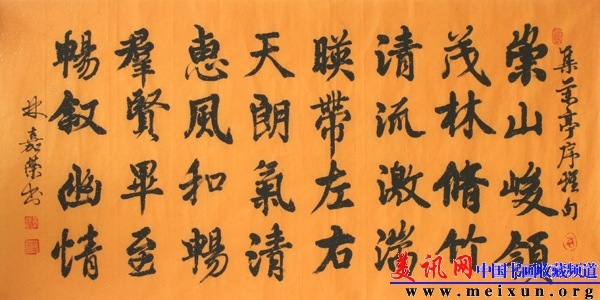 集兰亭序雅句
崇山峻領
茂林脩竹
清流激湍
暎帶左右
天朗氣清
惠風和暢
羣賢畢至
暢叙幽情
林嘉荣书
美讯网 中国书画收藏频道
www.meixun.org